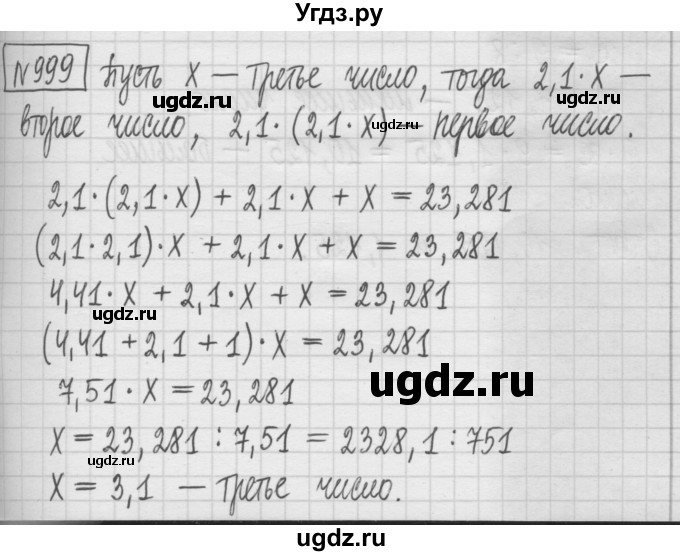 Угдз.ру
№999 Пусть х — третье число, тогда 2,1·х —
ugdz.ru
ugdz.ru
второе число, 2,1·(2,1·х) — первое число.
ugdz.ru
2,1·(2,1·х) + 2,1·х + х = 23,281
(2,1·2,1)·х + 2,1·х + х = 23,281
4,41·х + 2,1·х + х = 23,281
ugdz.ru
(4,41 + 2,1 + 1)·х = 23,281
ugdz.ru
7,51·х = 23,281
х = 23,281 : 7,51 = 2328,1 : 751
ugdz.ru
х = 3,1 — третье число.
ugdz.ru